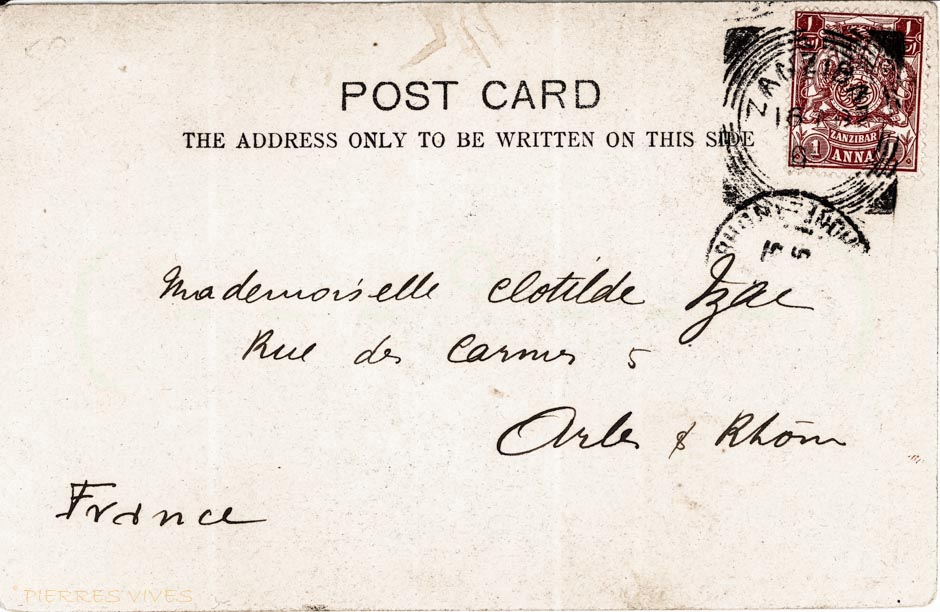 POST CARD
THE ADDRESS ONLY TO BE WRITTEN ON THIS SIDE
ZANZIBAR
1
ANNA
Mademoiselle Clotilde Izac
Rue des Carmes 5
Arles s/ Rhône
France
PIERRES VIVES